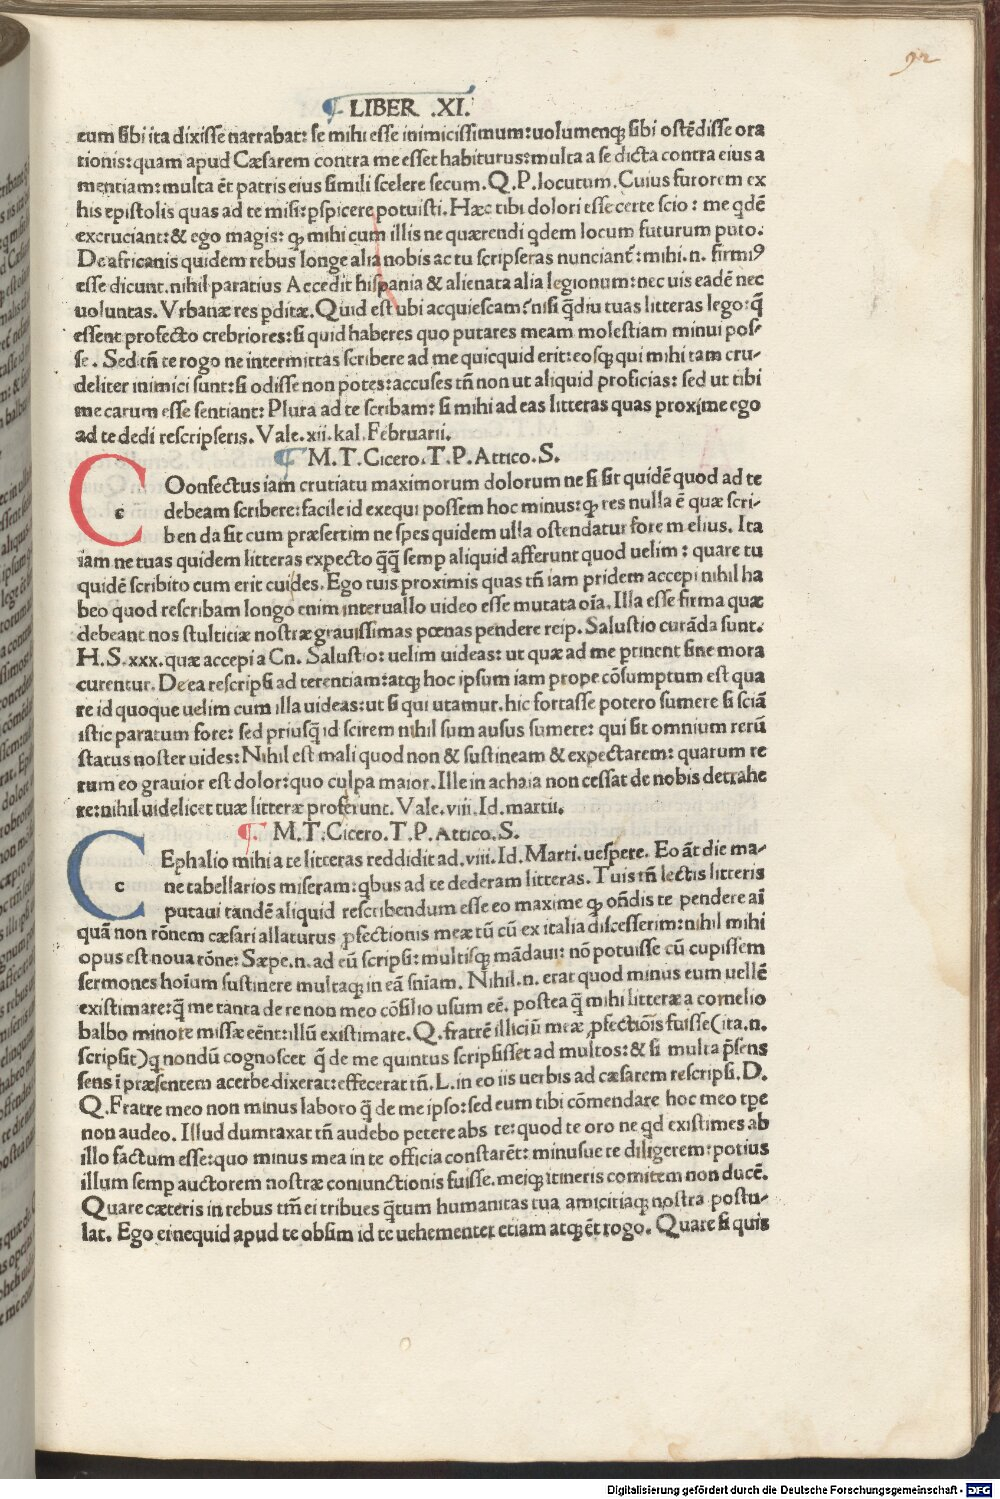 92
¶ LIBER .XI.
eum sibi ita dixisse narrabat: se mihi esse inimicissimum: uolumenq̨ sibi ostēdisse ora
tionis: quam apud Cæsarem contra me esset habiturus: multa a se dicta contra eius a
mentiam: multa ēt patris eius simili scelere secum. Q. P. locutum. Cuius furorem ex
his epistolis quas ad te misi: pspicere potuisti. Hæc tibi dolori esse certe scio: me qdē
excruciant: & ego magis: q̨ mihi cum illis ne quærendi qdem locum futurum puto.
De africanis quidem rebus longe alia nobis ac tu scripseras nunciant̄: mihi. n. firmiꝰ
esse dicunt. nihil paratius Accedit hispania & alienata alia legionum: nec uis eadē nec
uoluntas. Vrbanæ res pditæ. Quid est ubi acquiescam? nisi q̄diu tuas litteras lego: q̄
essent profecto crebriores: si quid haberes quo putares meam molestiam minui pos-
se. Sed tn̄ te rogo ne intermittas scribere ad me quicquid erit: eosq̨ qui mihi tam cru-
deliter inimici sunt: si odisse non potes: accuses tn̄ non ut aliquid proficias: sed ut tibi
me carum esse sentiant: Plura ad te scribam: si mihi ad eas litteras quas proxime ego
ad te dedi rescripseris. Vale. xii. kal. Februarii.
¶ M. T. Cicero. T. P. Attico. S.
C c Oonfectus iam crutiatu maximorum dolorum ne si sit quidē quod ad te
debeam scribere: facile id exequi possem hoc minus: q̨ res nulla ē quæ scri-
ben da sit cum præsertim ne spes quidem ulla ostendatur fore melius. Ita
iam ne tuas quidem litteras expecto q̄q̄ semp aliquid afferunt quod uelim: quare tu
quidē scribito cum erit cui des. Ego tuis proximis quas tn̄ iam pridem accepi nihil ha
beo quod rescribam longo enim interuallo uideo esse mutata oīa. Illa esse firma quæ
debeant nos stultitiæ nostræ grauissimas pœnas pendere reip. Salustio curāda sunt.
H. S. xxx. quæ accepi a Cn. Salustio: uelim uideas: ut quæ ad me ptinent sine mora
curentur. De ea rescripsi ad terentiam: atq̨ hoc ipsum iam prope cōsumptum est qua
re id quoque uelim cum illa uideas: ut si qui utamur. hic fortasse potero sumere si sciā
istic paratum fore: sed priusq̄ id scirem nihil sum ausus sumere: qui sit omnium rerū
status noster uides: Nihil est mali quod non & sustineam & expectarem: quarum re
rum eo grauior est dolor: quo culpa maior. Ille in achaia non cessat de nobis detrahe
re: nihil uidelicet tuæ litteræ proferunt. Vale. viii. Id. martii.
¶ M. T. Cicero. T. P. Attico. S.
C c Ephalio mihi a te litteras reddidit ad. viii. Id. Marti. uespere. Eo āt die ma-
ne tabellarios miseram: qbus ad te dederam litteras. Tuis tn̄ lectis litteris
putaui tandē aliquid rescribendum esse eo maxime q̨ on̄dis te pendere aī
quā non rōnem cæsari allaturus pfectionis meæ tū cū ex italia discesserim: nihil mihi
opus est noua rōne: Sæpe. n. ad eū scripsi: multisq̨ mādaui: nō potuisse cū cupissem
sermones hoīum sustinere multaq̨ in eā sn̄iam. Nihil. n. erat quod minus eum uellē
existimare: q̄ me tanta de re non meo cōsilio usum eē. postea q̄ mihi litteræ a cornelio
balbo minore missæ eēnt: illū existimare. Q. fratrē illiciū meæ pfectiōis fuisse (ita. n.
scripsit) q nondū cognoscet q̄ de me quintus scripsisset ad multos: & si multa p̄sens
sens ī præsentem acerbe dixerat: effecerat tn̄. L. in eo iis uerbis ad cæsarem rescripsi. D.
Q. Fratre meo non minus laboro q̄ de me ipso: sed eum tibi cōmendare hoc meo tpe
non audeo. Illud dumtaxat tn̄ audebo petere abs te: quod te oro ne qd existimes ab
illo factum esse: quo minus mea in te officia constarēt: minusue te diligerem: potius
illum semp auctorem nostræ coniunctionis fuisse. meiq̨ itineris comitem non ducē.
Quare cæteris in rebus tm̄ ei tribues q̄tum humanitas tua amicitiaq̨ nostra postu-
lat. Ego ei nequid apud te obsim id te uehementer etiam atq̨ ēt rogo. Quare si quis
Digitalisierung gefördert durch die Deutsche Forschungsgemeinschaft - DFG